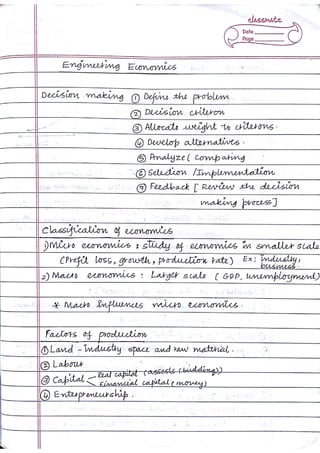 classmate
Date
Page
Engineering Economics
Decision making ① Define the problem
② Decision criterion
③ Allocate weight to criterions.
④ Develop alternatives.
⑤ Analyze ( comparing
⑥ Selection / Implementation
⑦ Feedback [ Review the decision
making process]
Classification of economics
1) Micro economics : study of economics in smaller scale
(Profit loss, growth, production rate) Ex: industry,
business.
2) Macro economics : Larger scale ( GDP, unemployment)
* Macro Influences micro economics.
Factors of production
① Land - industry space and raw material.
② Labour
③ Capital Real capital (assests (building))
Financial capital ( money)
④ Entrepreneurship.